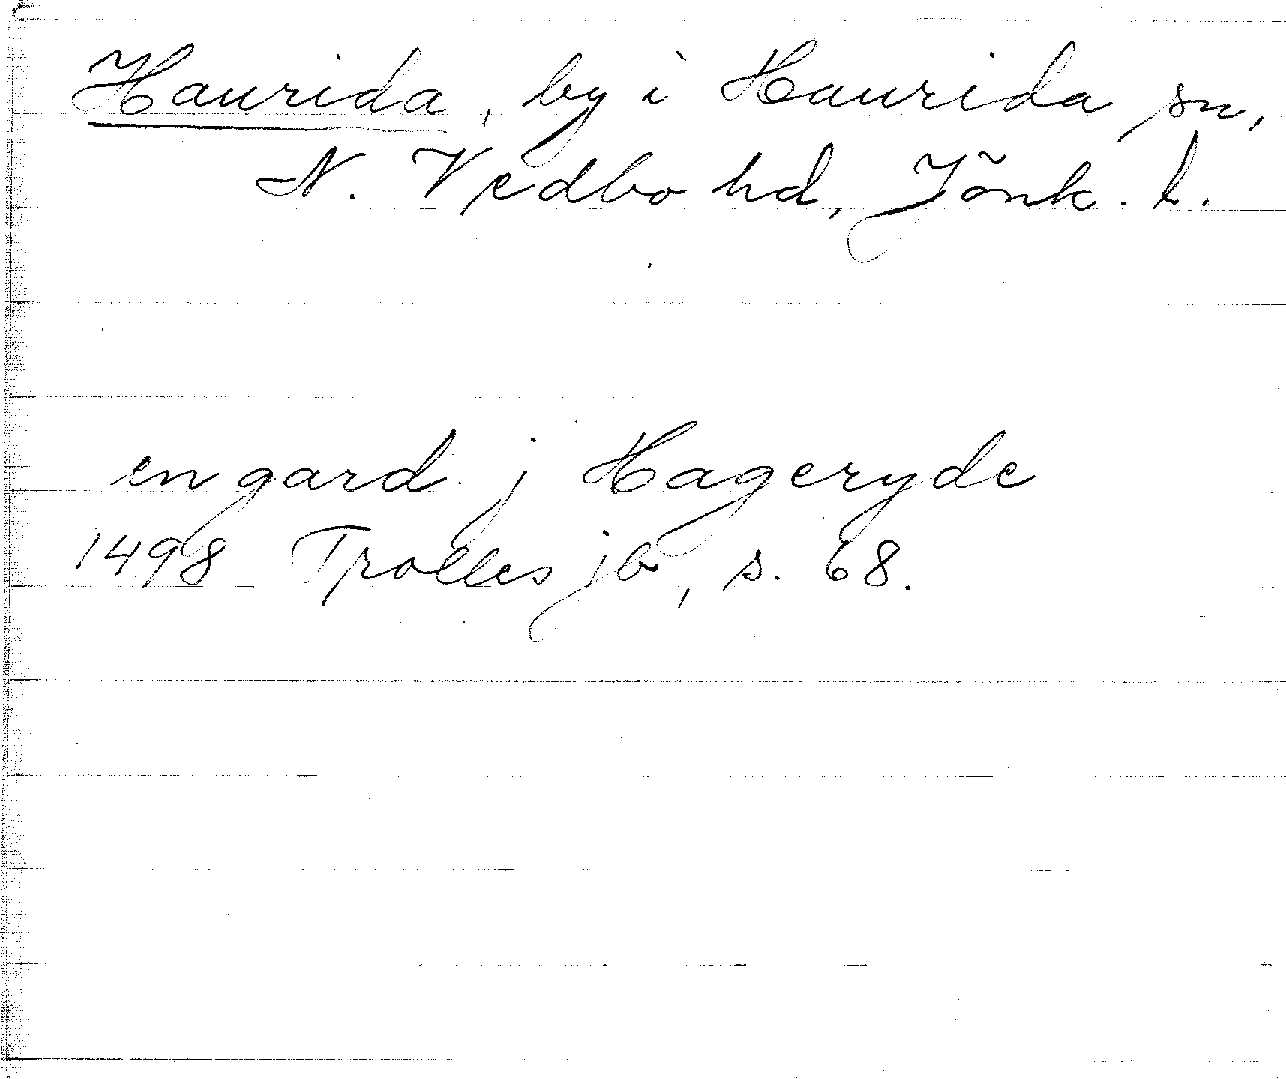 Haurida, by i Haurida sn,
N. Vedbo hd, Jönk. l.
en gard j Hageryde
1498 Trolles jb, s. 68.